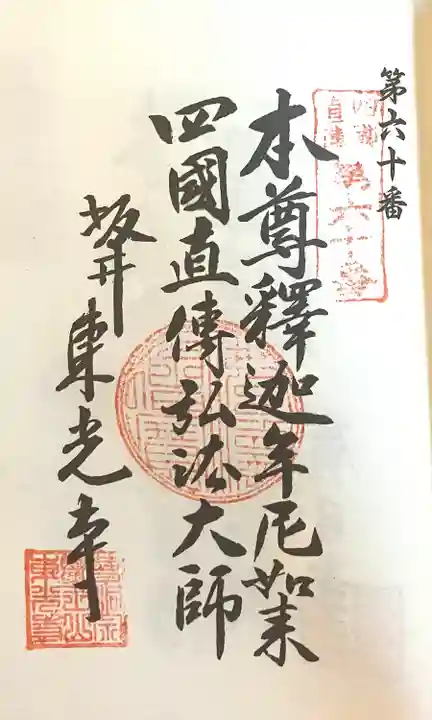 第六十番
四國
直傳
第六十番
本尊釋迦牟尼如来
四國直傳弘法大師
坂井東光寺